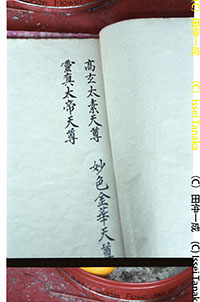 高玄太素天尊
靈真太帝天尊
妙色金華天尊
(C) 田仲一成 (C) Issei Tanaka
(C) 田仲一成 (C) Issei Tanaka